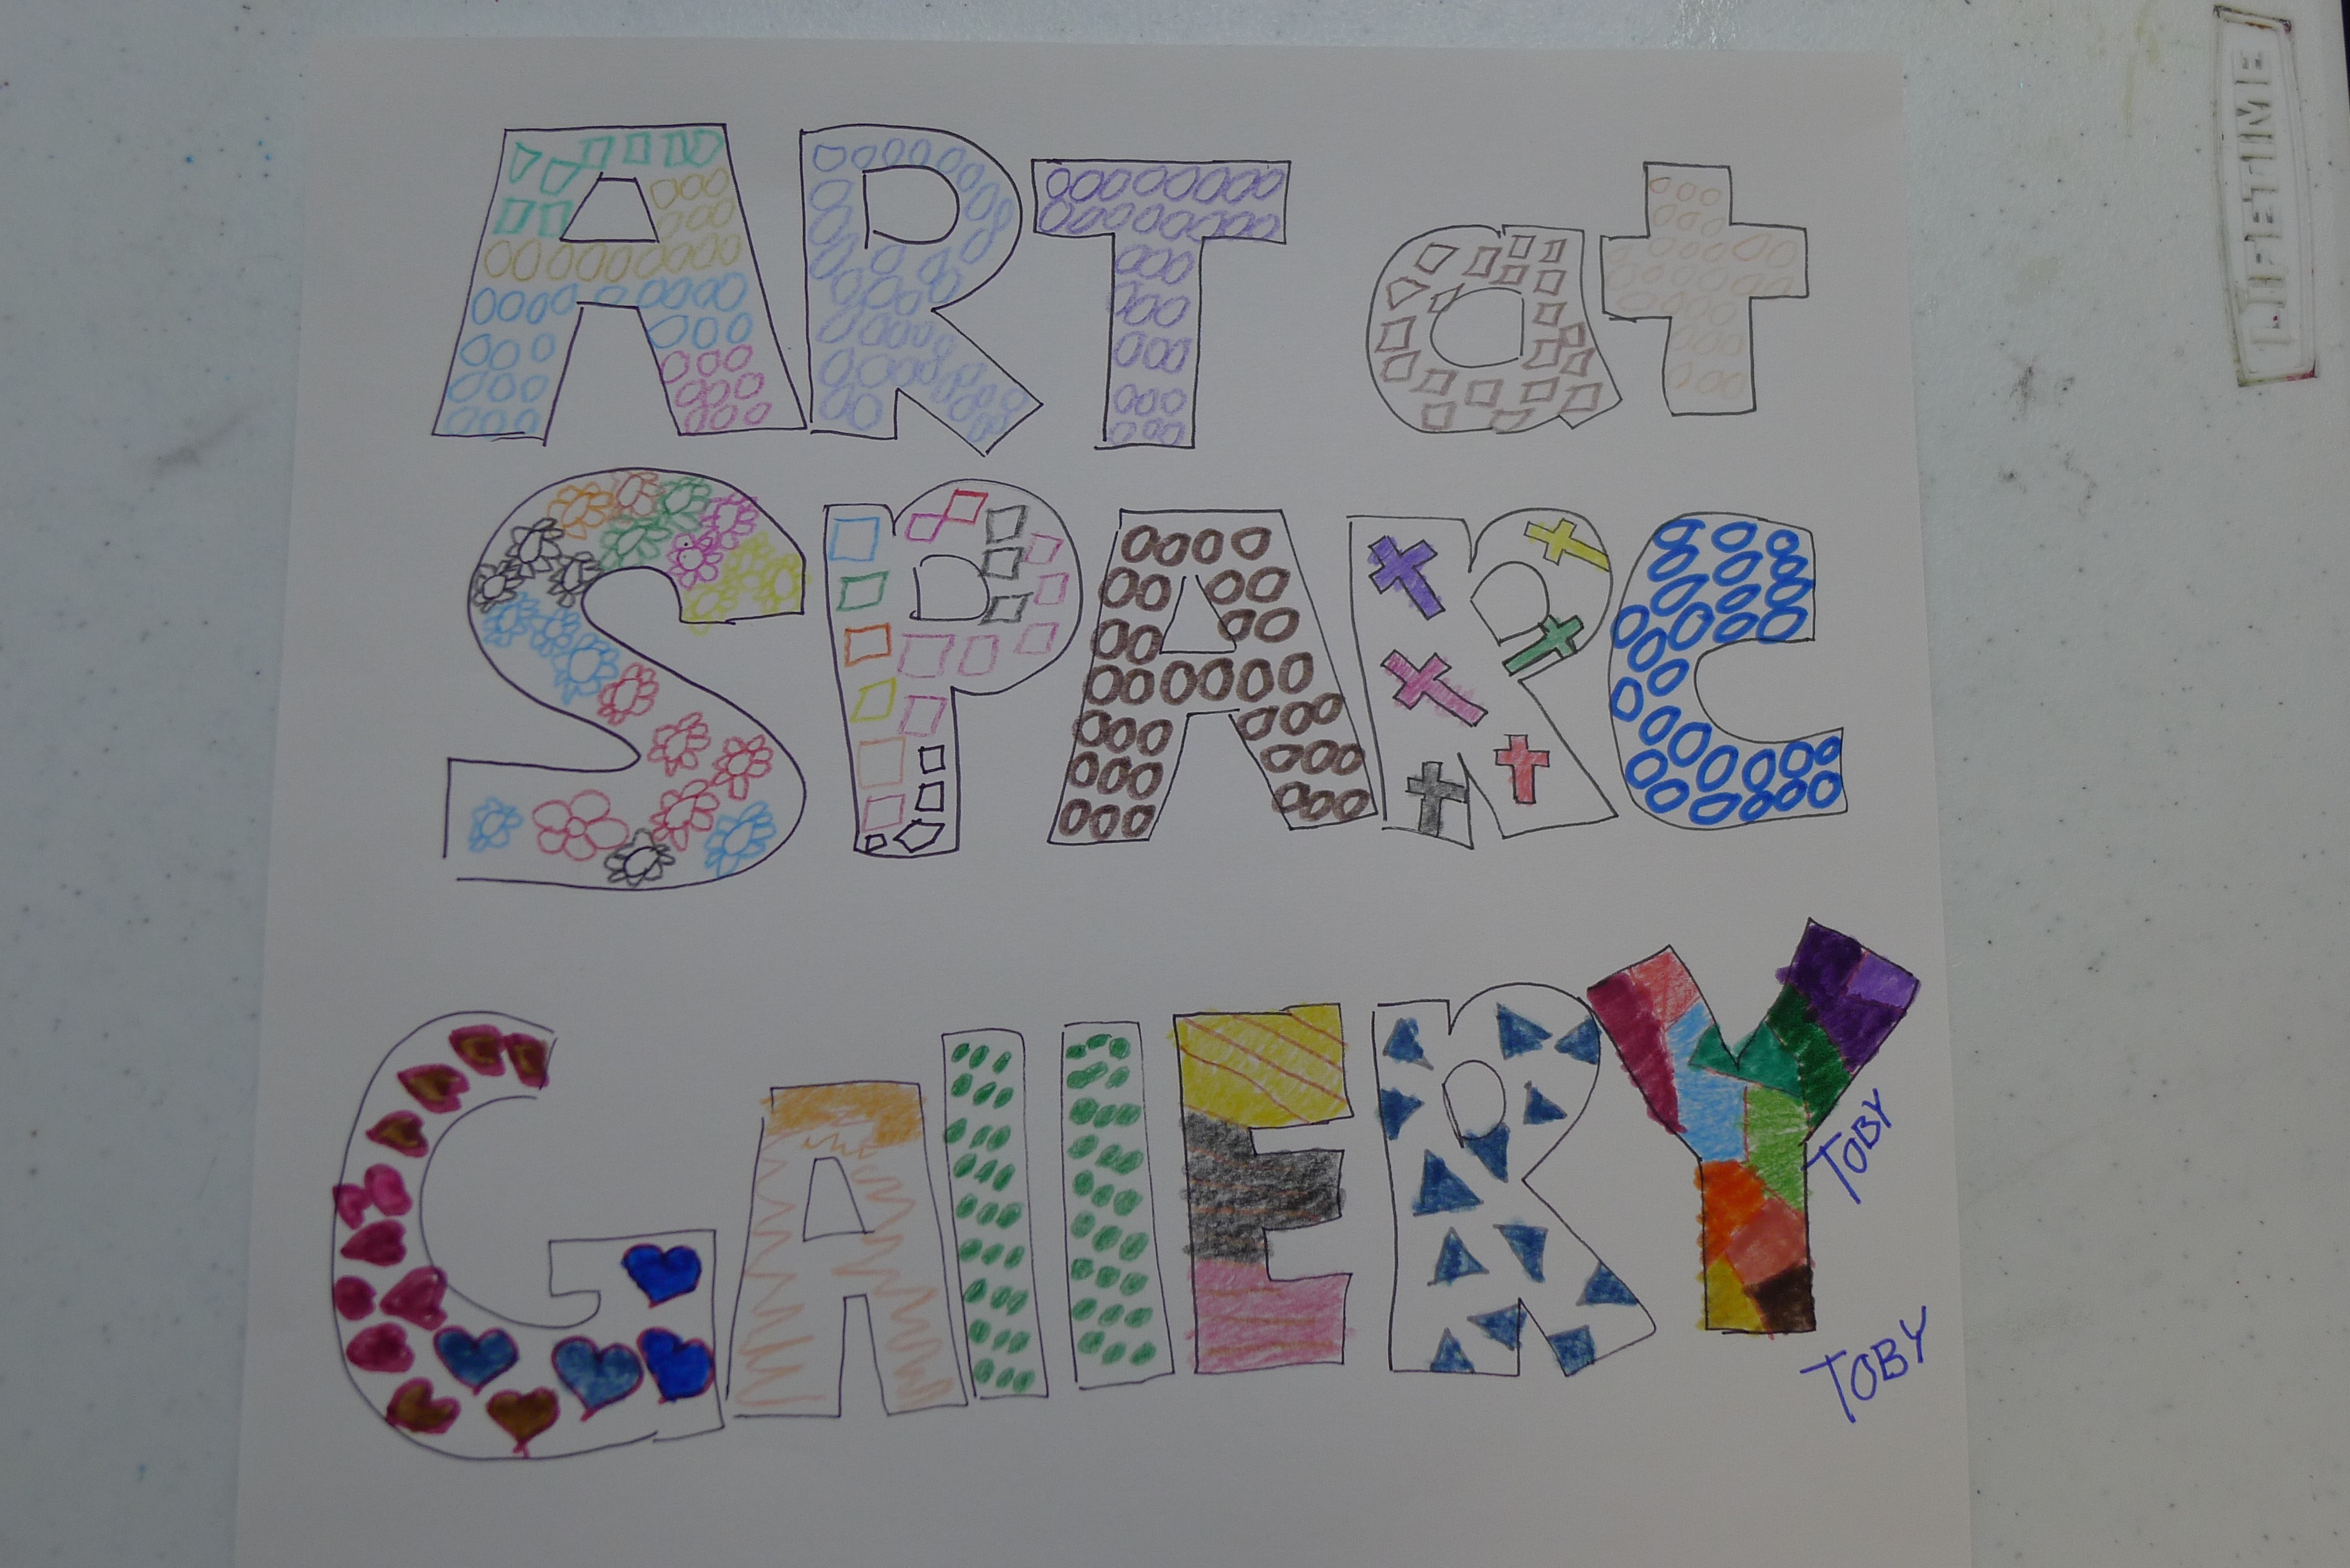 ART at
SPARC
GAllERY
TOBY
TOBY
LIFETIME